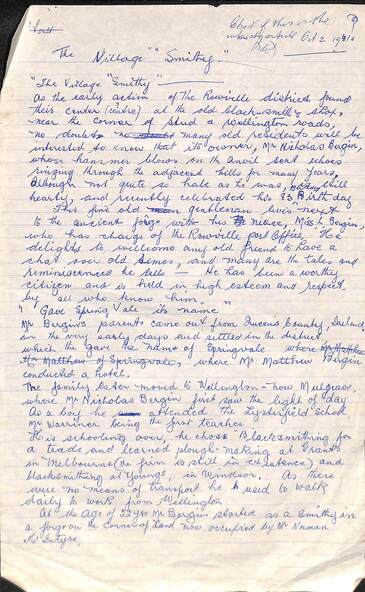 The Village "Smithy".
"The Village "Smithy"
As the early action of the Rowville district found
their center (centre) at the old Blacksmith's shop,
near the corner of Stud & Wellington roads,
no doubt many old residents will be
interested to know that its owner, Mr Nicholas Bergin,
whose hammer blows on the anvil sent echoes
ringing through the adjacent hills for many years,
although not quite so hale as he was, still
hearty, and recently celebrated his 83 Birthday
This fine old gentleman lives next
to the ancient forge with his niece, Miss L Bergin,
who has charge of the Rowville post Office. He
delights to welcome any old friend to have a
chat over old times, and many are the tales and
reminiscences he tells — He has been a worthy
citizen and is held in high esteem and respect
by all who know him."
"Gave Spring Vale its name"
Mr Bergin's parents came out from Queens County, Ireland,
in the very early days and settled in the district
which they gave the name of Springvale where
Mr Matthew of Springvale, where Mr Matthew Bergin
conducted a hotel.
The family later moved to Wellington - now Mulgrave,
where Mr Nicholas Bergin first saw the light of day
As a boy he attended the Lysterfield School
Mr Warriner being the first teacher
His schooling over, he chose Blacksmithing for
a trade and learned plough-making at Grants
in Melbourne (the firm is still in existence) and
blacksmithing at Youngs, in Windsor. As there
were no means of transport he used to walk
daily to work from Wellington
At the age of 22 yrs Mr Bergin started as a Smithy in
a forge on the corner of Land now occupied by Mr Numan
McIntyre,